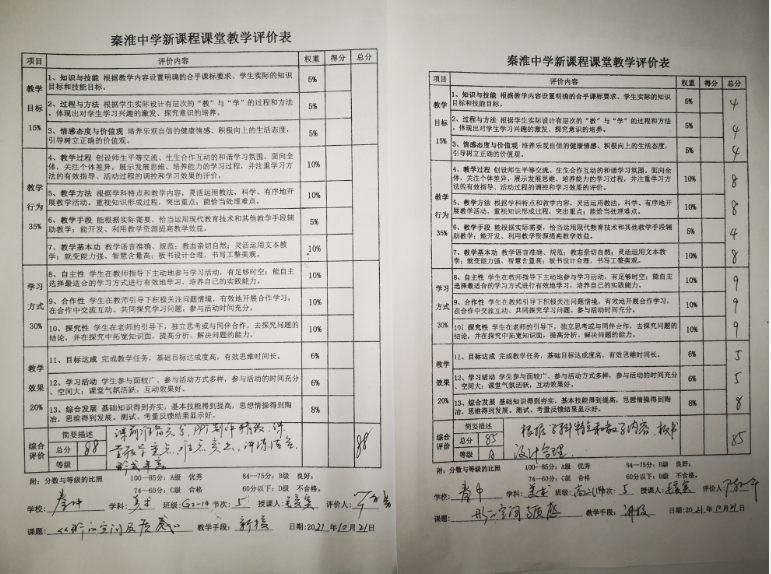 秦淮中学新课程课堂教学评价表
项目 评价内容 权重 得分 总分
教学目标 15%
1、知识与技能 根据教学内容设置明确的合乎课标要求、学生实际的知识目标和技能目标。 5%
2、过程与方法 根据学生实际设计有层次的“教”与“学”的过程和方法，体现出对学生学习兴趣的激发、探究意识的培养。 5%
3、情感态度与价值观 培养乐观自信的健康情感、积极向上的生活态度，引导树立正确的价值观。 5%
教学行为 35%
4、教学过程 创设师生平等交流、生生合作互动的和谐学习氛围，面向全体，关注个体差异，展示发展思维、培养能力的学习过程，并注重学习方法的有效指导、活动过程的调控和学习效果的评价。 10%
5、教学方法 根据学科特点和教学内容，灵活运用教法，科学、有序地开展教学活动。重视知识形成过程，突出重点；能恰当处理难点。 10%
6、教学手段 能根据实际需要，恰当运用现代教育技术和其他教学手段辅助教学；能开发、利用教学资源提高教学效益。 5%
7、教学基本功 教学语言准确、规范；教态亲切自然；灵活运用文本教学；就变能力强、智慧含量高；板书设计合理、书写工整美观。 10%
学习方式 30%
8、自主性 学生在教师指导下主动地参与学习活动，有足够时空；能自主选择最适合的学习方式进行有效地学习，培养自己的实践能力。 10%
9、合作性 学生在教师引导下积极关注问题情境，有效地开展合作学习，在合作中交流互动、共同探究学习问题，参与活动时间充分。 10%
10、探究性 学生在老师的引导下，独立思考或与同伴合作，去探究问题的结论，并在探究中拓宽知识面，提高分析、解决问题的能力。 10%
教学效果 20%
11、目标达成 完成教学任务，基础目标达成度高，有效思维时间长。 6%
12、学习活动 学生参与面较广、参与活动方式多样，参与活动的时间充分、空间大；课堂气氛活跃，互动效果好。 6%
13、综合发展 基础知识得到夯实，基本技能得到提高，思想情操得到陶冶，思维得到发展。测试、考量反馈结果显示好。 8%
综合评价 简要描述
总分 88
等级
88
附：分数与等级的比照 100—85分：A级 优秀 84—75分：B级 良好；
74—60分：C级 合格 60分以下：D级 不合格。
学校： 学科：美术 班级： 节次：5 授课人： 评价人：
课题： 教学手段：新授 日期：2021年10月21日
秦淮中学新课程课堂教学评价表
项目 评价内容 权重 得分 总分
教学目标 15%
1、知识与技能 根据教学内容设置明确的合乎课标要求、学生实际的知识目标和技能目标。 5% 4
2、过程与方法 根据学生实际设计有层次的“教”与“学”的过程和方法，体现出对学生学习兴趣的激发、探究意识的培养。 5% 4
3、情感态度与价值观 培养乐观自信的健康情感、积极向上的生活态度，引导树立正确的价值观。 5% 4
教学行为 35%
4、教学过程 创设师生平等交流、生生合作互动的和谐学习氛围，面向全体，关注个体差异，展示发展思维、培养能力的学习过程，并注重学习方法的有效指导、活动过程的调控和学习效果的评价。 10% 8
5、教学方法 根据学科特点和教学内容，灵活运用教法，科学、有序地开展教学活动。重视知识形成过程，突出重点；能恰当处理难点。 10% 8
6、教学手段 能根据实际需要，恰当运用现代教育技术和其他教学手段辅助教学；能开发、利用教学资源提高教学效益。 5% 4
7、教学基本功 教学语言准确、规范；教态亲切自然；灵活运用文本教学；就变能力强、智慧含量高；板书设计合理、书写工整美观。 10% 8
学习方式 30%
8、自主性 学生在教师指导下主动地参与学习活动，有足够时空；能自主选择最适合的学习方式进行有效地学习，培养自己的实践能力。 10% 9
9、合作性 学生在教师引导下积极关注问题情境，有效地开展合作学习，在合作中交流互动、共同探究学习问题，参与活动时间充分。 10% 9
10、探究性 学生在老师的引导下，独立思考或与同伴合作，去探究问题的结论，并在探究中拓宽知识面，提高分析、解决问题的能力。 10% 9
教学效果 20%
11、目标达成 完成教学任务，基础目标达成度高，有效思维时间长。 6% 5
12、学习活动 学生参与面较广、参与活动方式多样，参与活动的时间充分、空间大；课堂气氛活跃，互动效果好。 6% 5
13、综合发展 基础知识得到夯实，基本技能得到提高，思想情操得到陶冶，思维得到发展。测试、考量反馈结果显示好。 8% 8
综合评价 简要描述 根据学科特点和教学内容，板书
总分 85 设计合理
等级 A
85
附：分数与等级的比照 100—85分：A级 优秀 84—75分：B级 良好；
74—60分：C级 合格 60分以下：D级 不合格。
学校：秦中 学科：美术 班级： 节次：5 授课人： 评价人：
课题： 教学手段：讲授 日期：2021年10月21日